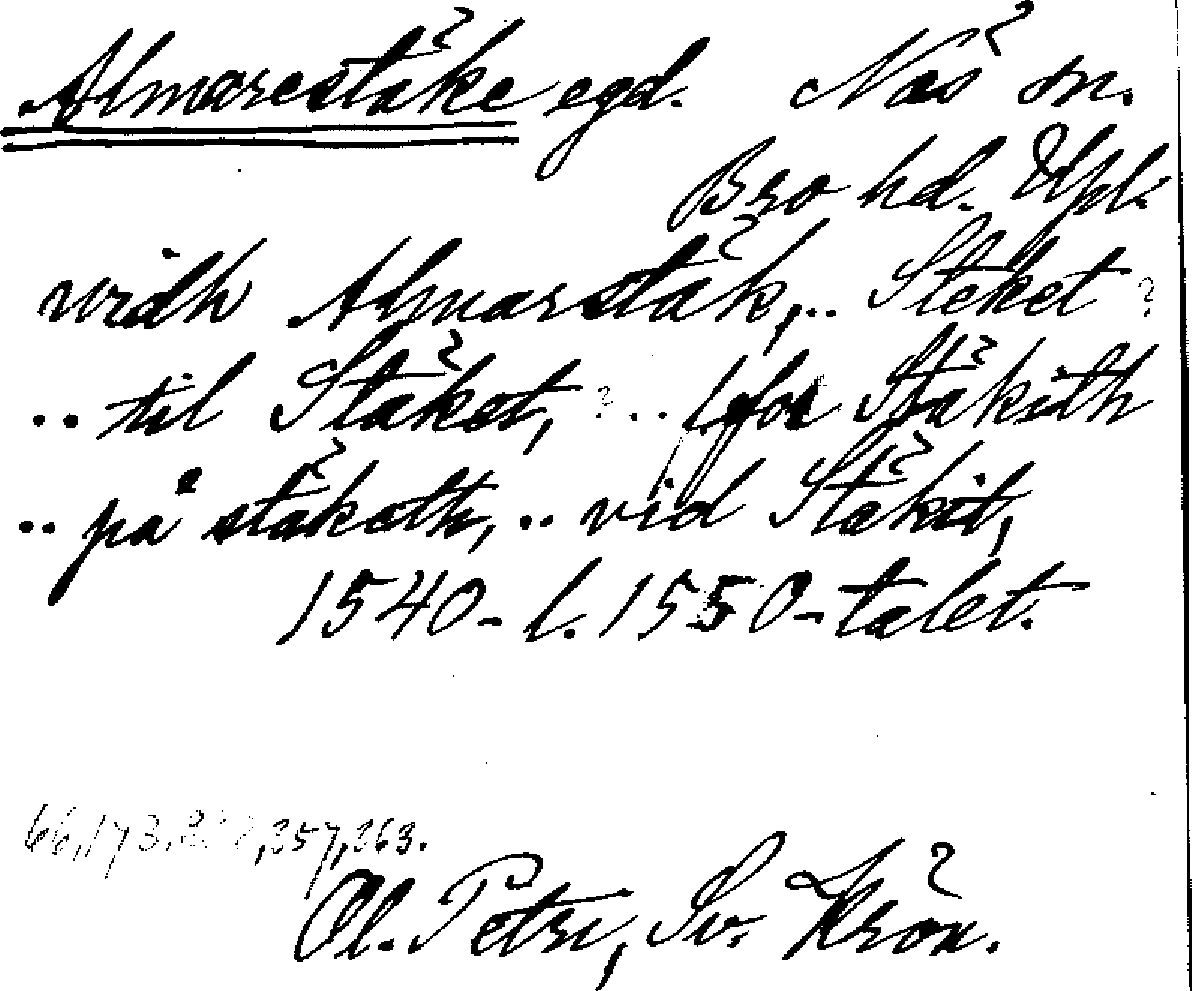 Almarestäke egd. Näs sn.
Bro hd. Upl.
widh Almarstäk,.. Steket ?
.. til Stäket, ? .. for Stäkith
.. på stäketh, .. vid Stäkit,
1540- l. 1550-talet.
66,173, ,257,263.
Ol. Petri, Sv. Krön.